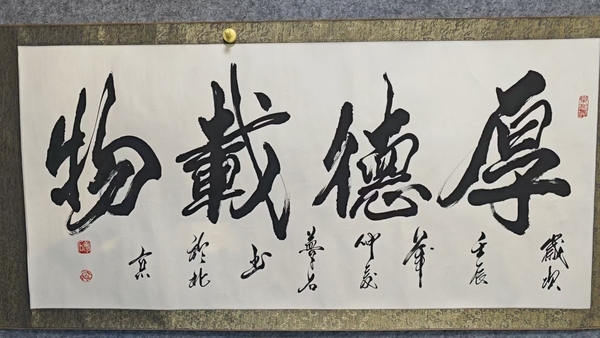 厚德載物
歲次
壬辰
年
仲夏
书
於北
京